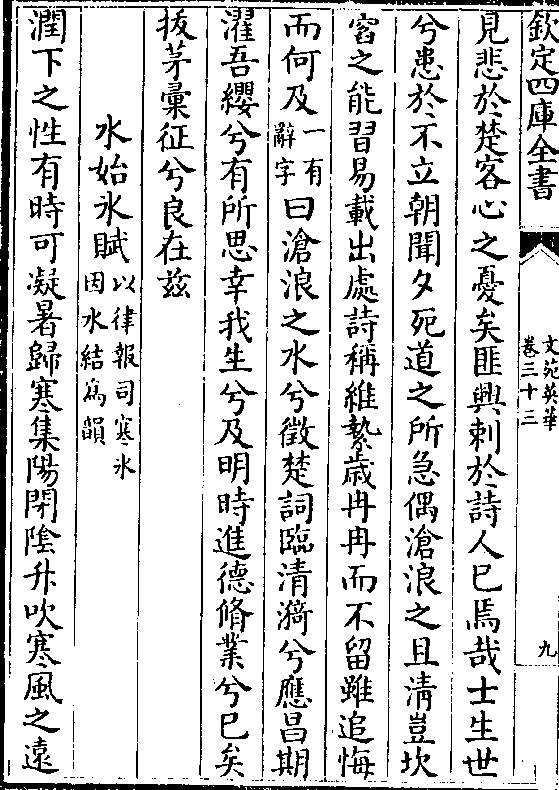 欽定四庫全書
文苑英華
卷三十三
九
見悲於楚客心之憂矣匪興刺於詩人已焉哉士生世
兮患於不立朝聞夕死道之所急偶滄浪之且清豈坎
窞之能習易載出處詩稱維縶歳冉冉而不留雖追悔
而何及一有辭字曰滄浪之水兮徵楚詞臨清漪兮應昌期
濯吾纓兮有所思幸我生兮及明時進德脩業兮已矣
拔茅彙征兮良在兹
水始氷賦以律報司寒氷因水結爲韻
潤下之性有時可凝暑歸寒集陽閉陰升吹寒風之遠